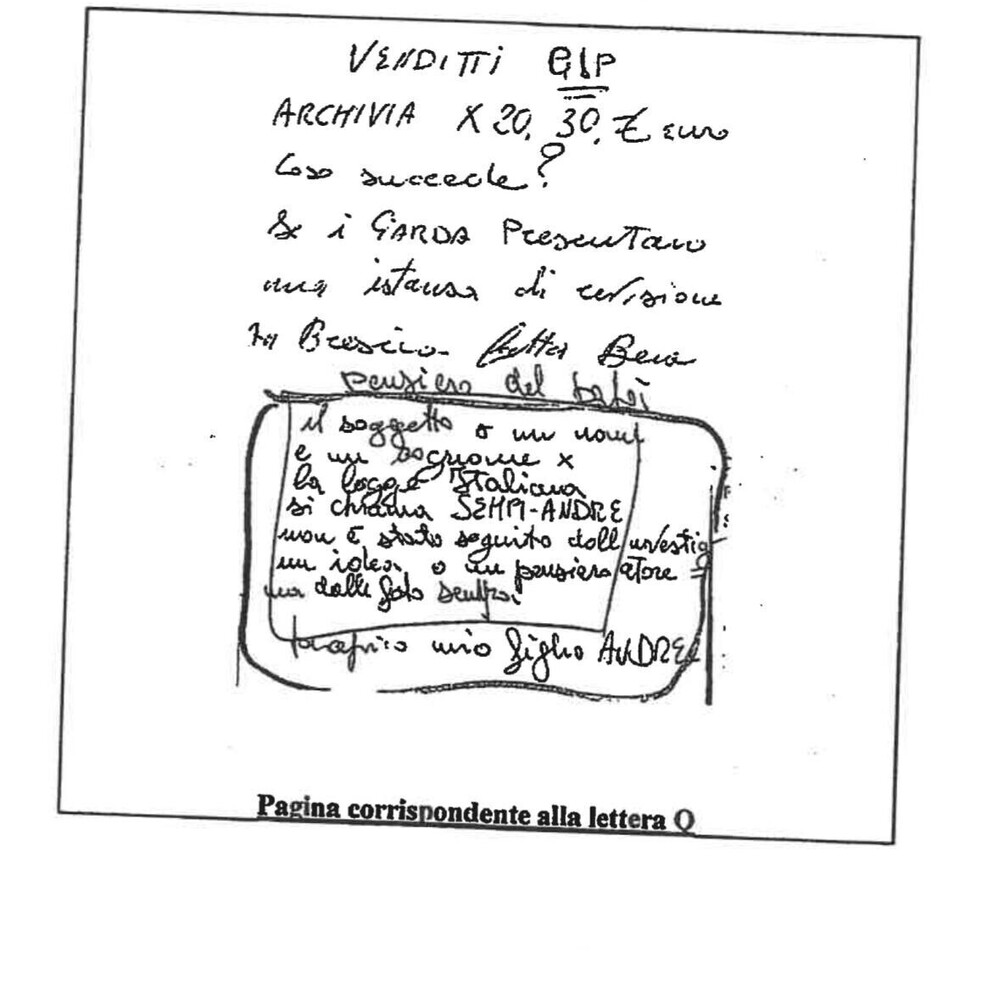 VENDITTI GIP
ARCHIVIA X 20. 30. € euro
Cosa succede?
Se i GARDA Presentano
una istansa di revisione
In Brescia fatta Bene
pensiero del
il soggetto o un nome
e un cognome x
la legge Italiana
si chiama SEMPI-ANDRE
non è stato seguito dall investig
un idea o un pensiero atore =
ma dalle foto sembra
proprio mio figlio ANDREA
Pagina corrispondente alla lettera Q